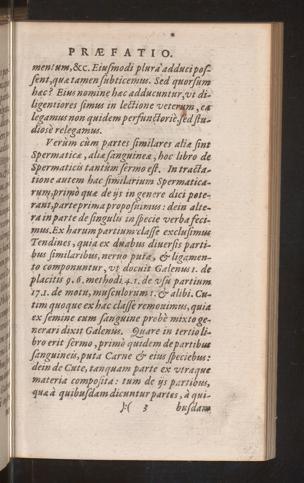 PRÆFATIO.
mentum, &c. Eiusmodi plura adduci pos-
sent, quæ tamen subticemus. Sed quorsum
hæc? Eius nomine hæc adducuntur, vt di-
ligentiores simus in lectione veterum, ea
legamus non quidem perfunctoriè, sed stu-
diosè relegamus.
Verum cùm partes similares aliæ sint
Spermaticæ, aliæ sanguineæ, hoc libro de
Spermaticis tantùm sermo est. In tracta-
tione autem hac similarium Spermatica-
rum, primò quæ de ijs in genere dici pote-
rant, parte prima proposuimus: dein alte-
ra in parte de singulis in specie verba feci-
mus. Ex harum partium classe exclusimus
Tendines, quia ex duabus diuersis parti-
bus similaribus, neruo putà, & ligamen-
to componuntur, vt docuit Galenus 1. de
placitis 9. 6. methodi 4. 1. de vsu partium
17. 1. de motu, musculorum 1. & alibi. Cu-
tim quoque ex hac classe remouimus, quia
ex semine cum sanguine probè mixto ge-
nerari dixit Galenus. Quare in tertio li-
bro erit sermo, primò quidem de partibus
sanguineis, puta Carne & eius speciebus:
dein de Cute, tanquam parte ex vtraque
materia composita: tum de ijs partibus,
quæ à quibusdam dicuntur partes, à qui-
)( 3 busdam